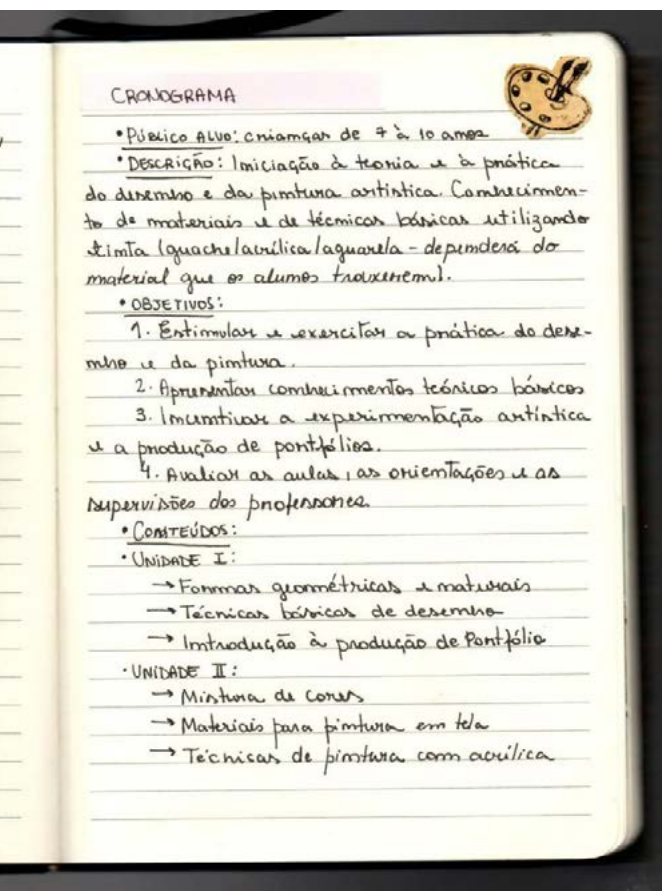 CRONOGRAMA
• Público Alvo: crianças de 7 à 10 anos
• Descrição: Iniciação à teoria e à prática
do desenho e da pintura artística. Conhecimen-
to de materiais e de técnicas básicas utilizando
tinta (guache/acrílica/aquarela - dependerá do
material que os alunos trouxerem).
• OBJETIVOS:
1. Estimular e exercitar a prática do dese-
nho e da pintura.
2. Apresentar conhecimentos teóricos básicos
3. Incentivar a experimentação artística
e a produção de portfólios.
4. Avaliar as aulas, as orientações e as
supervisões dos professores.
• CONTEÚDOS:
• UNIDADE I:
→ Formas geométricas e naturais
→ Técnicas básicas de desenho
→ Introdução à produção de Portfólio
• UNIDADE II:
→ Mistura de cores
→ Materiais para pintura em tela
→ Técnicas de pintura com acrílica